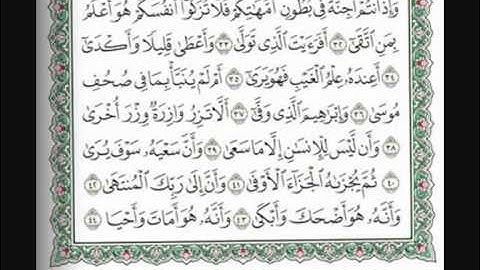 وَإِذْ أَنتُمْ أَجِنَّةٌ فِى بُطُونِ أُمَّهَٰتِكُمْ فَلَا تُزَكُّوٓا۟ أَنفُسَكُمْ هُوَ أَعْلَمُ
بِمَنِ ٱتَّقَىٰٓ ٣٢ أَفَرَءَيْتَ ٱلَّذِى تَوَلَّىٰ ٣٣ وَأَعْطَىٰ قَلِيلًا وَأَكْدَىٰٓ
٣٤ أَعِندَهُۥ عِلْمُ ٱلْغَيْبِ فَهُوَ يَرَىٰٓ ٣٥ أَمْ لَمْ يُنَبَّأْ بِمَا فِى صُحُفِ
مُوسَىٰ ٣٦ وَإِبْرَٰهِيمَ ٱلَّذِى وَفَّىٰٓ ٣٧ أَلَّا تَزِرُ وَازِرَةٌ وِزْرَ أُخْرَىٰ
٣٨ وَأَن لَّيْسَ لِلْإِنسَٰنِ إِلَّا مَا سَعَىٰ ٣٩ وَأَنَّ سَعْيَهُۥ سَوْفَ يُرَىٰ
٤٠ ثُمَّ يُجْزَىٰهُ ٱلْجَزَآءَ ٱلْأَوْفَىٰ ٤١ وَأَنَّ إِلَىٰ رَبِّكَ ٱلْمُنتَهَىٰ ٤٢
وَأَنَّهُۥ هُوَ أَضْحَكَ وَأَبْكَىٰ ٤٣ وَأَنَّهُۥ هُوَ أَمَاتَ وَأَحْيَا ٤٤